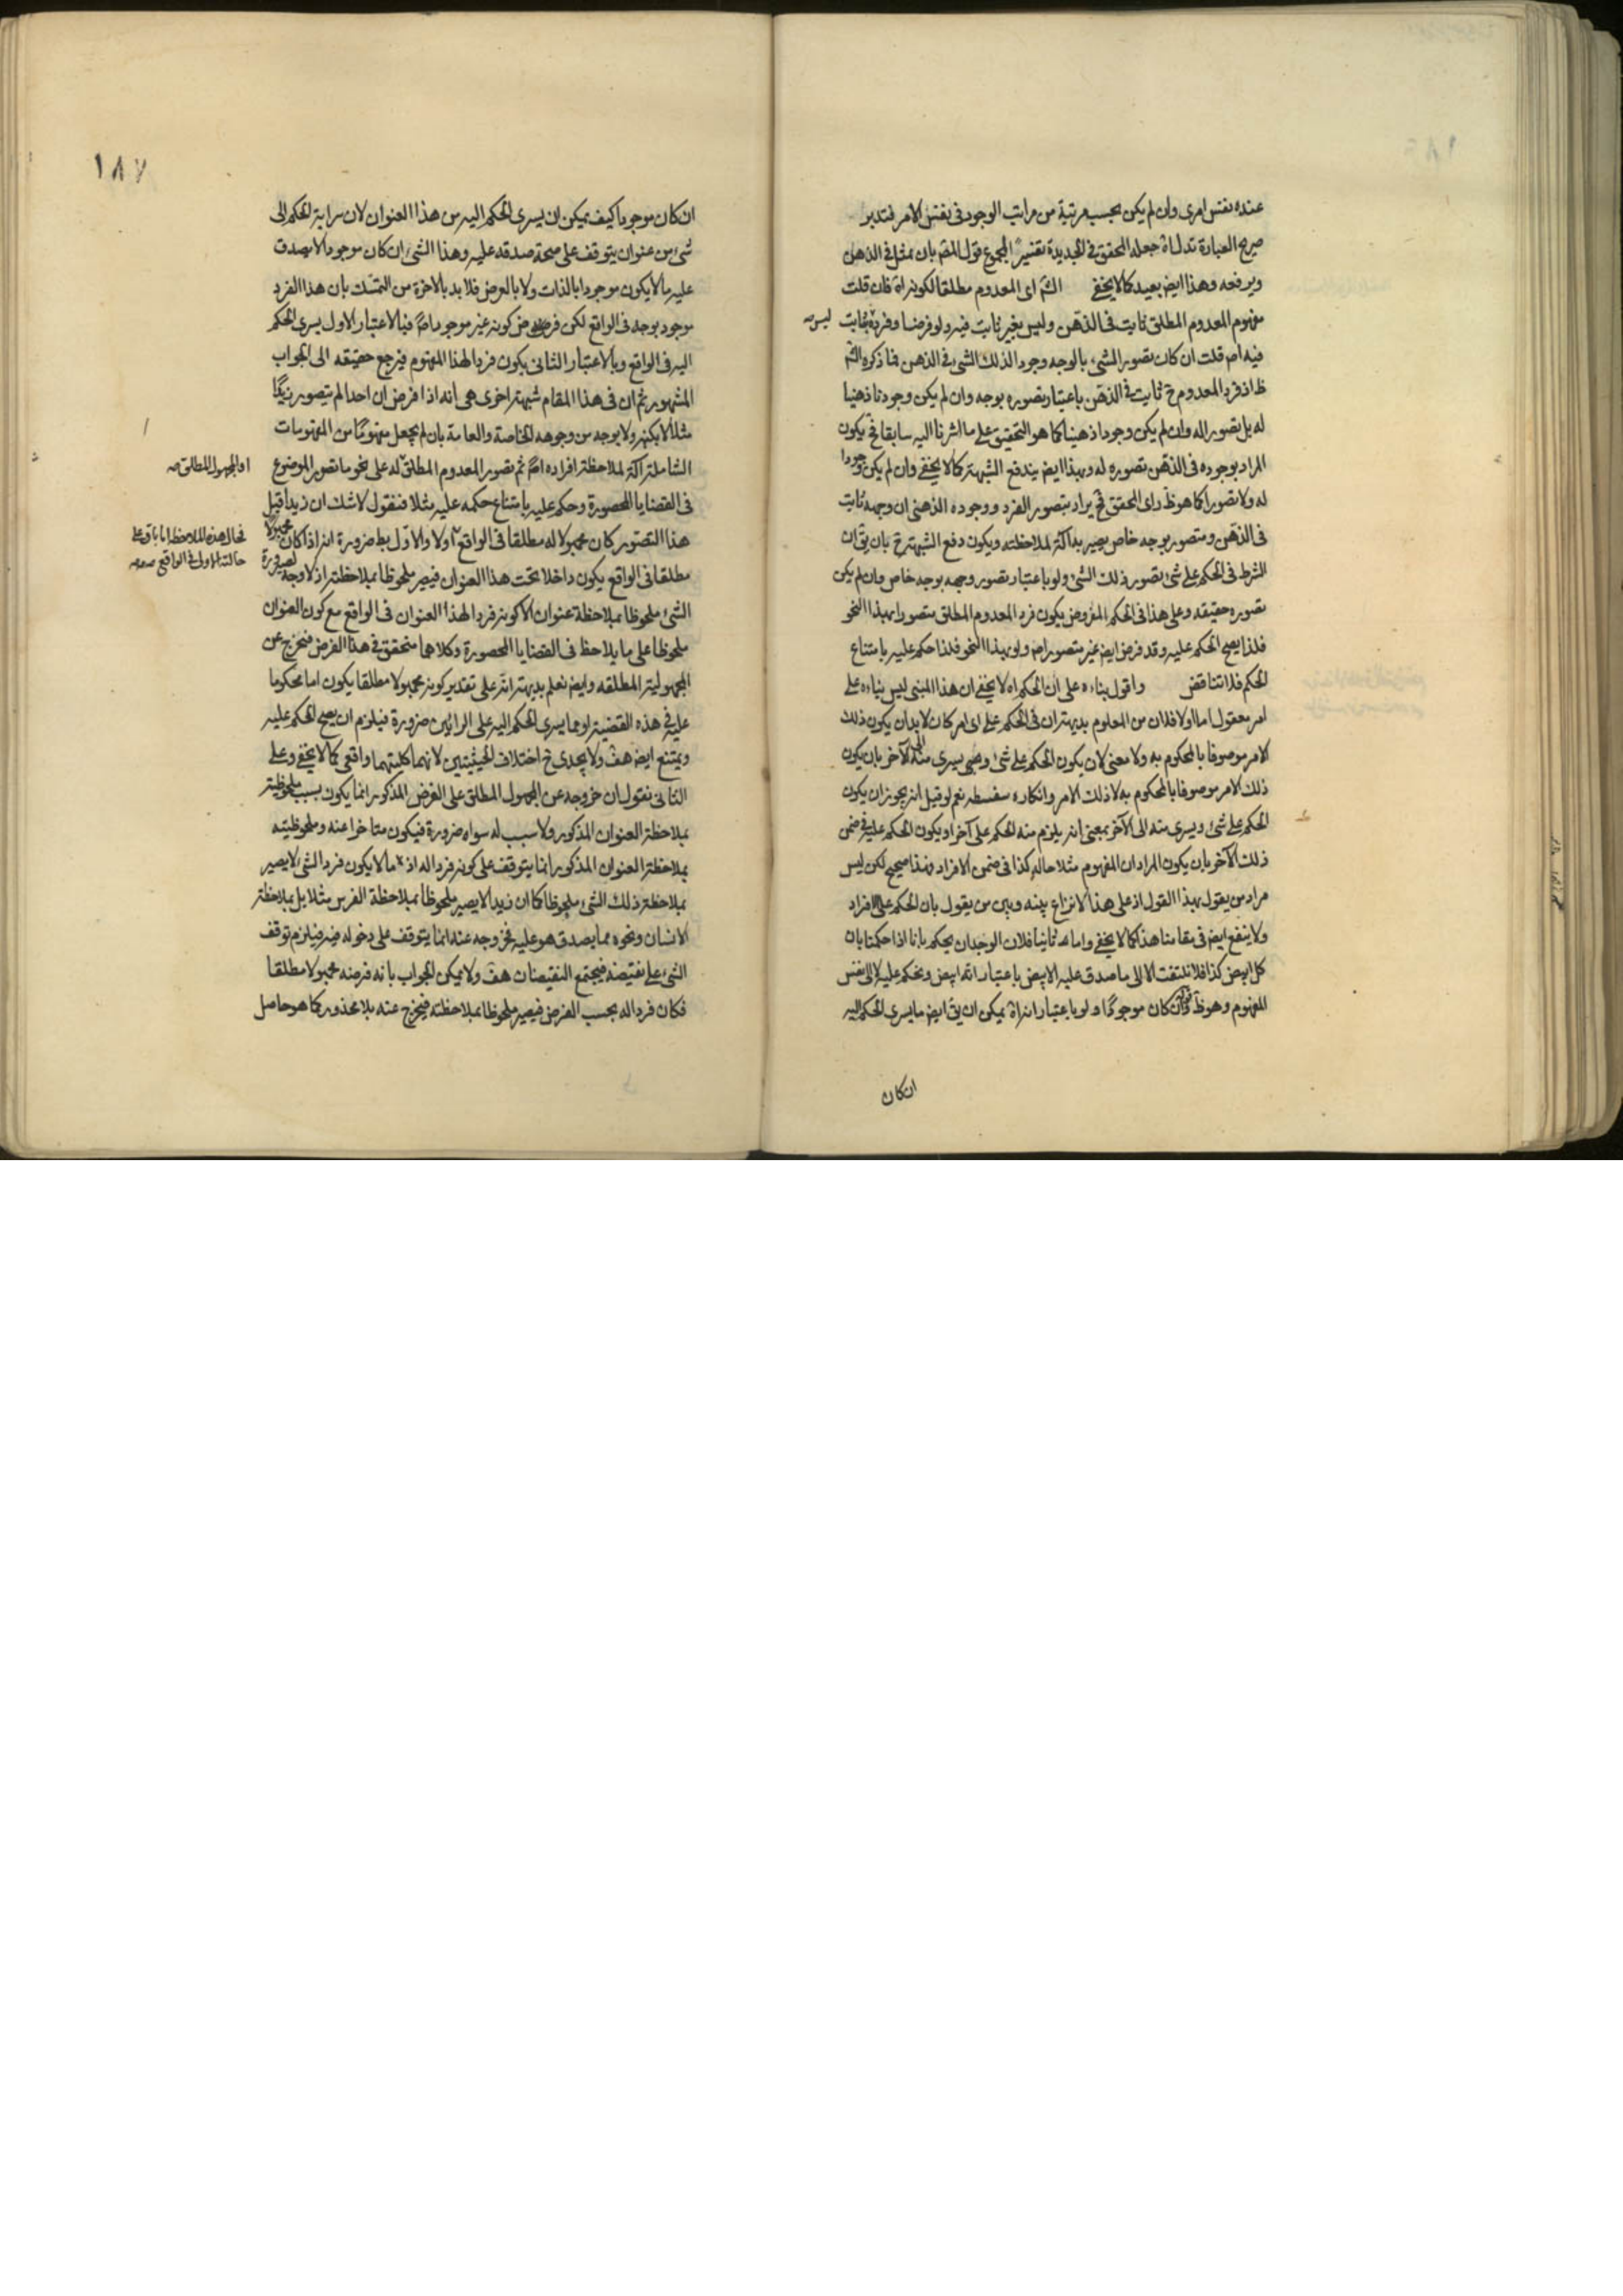 عنده نفس امرى وان لم يكن بحسب مرتبة من مراتب الوجود فى نفس الامر فتدبر
صريح العبارة تدل اة جعله المحقق فى الجديدة تفسيرا لمجموع قول المقم بان يمثل فى الذهن
ويرفعه وهذا ايض بعيد كما لا يخفى الثم اى المعدوم مطلقا لكونه اة فان قلت
مفهوم المعدوم المطلق ثابت فى الذهن وليس بغير ثابت فيه ولو فرضا وفرده ثابت
ليس صه
فيه اصم قلت ان كان تصور الشئ بالوجه وجود الذلك الشئ فى الذهن فما ذكره الثم
ظ اذ فرد المعدوم ح ثابت فى الذهن باعتبار تصوره بوجه وان لم يكن وجودنا ذهنيا
له بل تصور اله وان لم يكن وجودا ذهنيا كما هو التحقيق على ما اشرنا اليه سابقا فح يكون
المراد بوجوده فى الذهن تصوره له وبهذا ايض يندفع الشبهة كما لا يخفى وان لم يكن وجودا
له ولا تصورا كما هو ظ راى المحقق فح يراد بتصور الفرد ووجوده الذهنى ان وجهه ثابت
فى الذهن ومتصور بوجه خاص يصير به آلة لملاحظته ويكون دفع الشبهة ح بان يق ان
الشرط فى الحكم على شئ تصور ذلك الشئ ولو باعتبار تصور وجهه بوجه خاص وان لم يكن
تصوره حقيقه وعلى هذا فى الحكم المفروض يكون فرد المعدوم المطلق متصورا بهذا النحو
فلذا يصح الحكم عليه وقد فرض ايض غير متصور اصم ولو بهذا النحو فلذا حكم عليه بامتناع
الحكم فلا تناقض واقول بناءه على ان الحكم اه لا يخفى ان هذا المبنى ليس بناءه على
امر معقول اما اولا فلان من المعلوم بديهة ان فى الحكم على اى امر كان لا بد ان يكون ذلك
الامر موصوفا بالمحكوم به ولا معنى لان يكون الحكم على شئ وهى يسرى منه الى الآخر بان يكون
ذلك الامر موصوفا بالمحكوم به لا ذلك الامر وانكاره سفسطه نعم لو قيل انه يجوز ان يكون
الحكم على شئ ويسرى منه الى الآخر بمعنى انه يلزم منه الحكم على آخر او يكون الحكم عليه فى ضمن
ذلك الآخر بان يكون المراد ان المفهوم مثلا حاله كذا فى ضمن الافراد فهذا صحيح لكن ليس
مراد من يقول بهذا القول اذ على هذا لا نزاع بينه وبين من يقول بان الحكم على الافراد
ولا ينفع ايض فى مقامنا هذا كما لا يخفى واما ثانيا فلان الوجدان يحكم بانا اذا حكمنا بان
كل ابيض كذا فلا نلتفت الا الى ما صدق عليه الابيض باعتبار انه ابيض ونحكم عليه لا الى نفس
المفهوم وهو ظ قوله ان كان موجودا ولو باعتبار انه اة يمكن ان يق ايض ما يسرى الحكم اليه
ان كان
١٨٧
ان كان موجودا كيف يمكن ان يسرى الحكم اليه من هذا العنوان لان سراية الحكم الى
شئ من عنوان يتوقف على صحة صدقه عليه وهذا الشئ ان كان موجودا لا يصدق
عليه ما لا يكون موجودا بالذات ولا بالعرض فلا بد بالاخرة من التمسك بان هذا الفرد
موجود بوجه فى الواقع لكن فرض كونه غير موجود اصم فبالاعتبار الاول يسرى الحكم
اليه فى الواقع وبالاعتبار الثانى يكون فردا لهذا المفهوم فيرجع حقيقه الى الجواب
المشهور ثم ان فى هذا المقام شبهة اخرى هى انه اذا فرض ان احدا لم يتصور زيدا
مثلا لا بكنهه ولا بوجه من وجوهه الخاصة والعامة بان لم يجعل مفهوما من المفهومات
الشاملة آلة لملاحظة افراده اصم ثم تصور المعدوم المطلق له على نحو ما تصور الموضوع
او المجهول المطلق صه
فى القضايا المحصورة وحكم عليه بامتناع حكمه عليه مثلا فنقول لا شك ان زيدا قبل
هذا التصور كان مجهولا له مطلقا فى الواقع اولا والاول بط ضرورة انه اذا كان مجهولا
فحال هذه الملاحظة اما باق على
حالته الاولى فى الواقع صه
مطلقا فى الواقع يكون داخلا تحت هذا العنوان فيصير ملحوظا بملاحظته اذ لا وجه لصيرورة
الشئ ملحوظا بملاحظة عنوان الا كونه فردا لهذا العنوان فى الواقع مع كون العنوان
ملحوظا على ما يلاحظ فى القضايا المحصورة وكلاهما متحقق فى هذا الفرض فيخرج عن
المجهولية المطلقه وايض نعلم بديهة انه على تقدير كونه مجهولا مطلقا يكون اما محكوما
عليه فى هذه القضية او مما يسرى الحكم اليه على الرايين ضرورة فيلزم ان يصح الحكم عليه
ويمتنع ايض هف ولا يجدى ح اختلاف الحيثيتين لانهما كلتيهما واقعى كما لا يخفى وعلى
الثانى نقول ان خروجه عن المجهول المطلق على الفرض المذكور انما يكون بسبب ملحوظيته
بملاحظة العنوان المذكور ولا سبب له سواه ضرورة فيكون متاخرا عنه وملحوظيته
بملاحظة العنوان المذكور انما يتوقف على كونه فردا له اذ ما لا يكون فردا لشئ لا يصير
بملاحظة ذلك الشئ ملحوظا كما ان زيدا لا يصير ملحوظا بملاحظة الفرس مثلا بل بملاحظة
الانسان ونحوه مما يصدق هو عليه فخروجه عنه انما يتوقف على دخوله فيه فيلزم توقف
الشئ على نقيضه فيجتمع النقيضان هف ولا يمكن الجواب بانه فرضه مجهولا مطلقا
فكان فردا له بحسب الفرض فيصير ملحوظا بملاحظته فيخرج عنه بلا محذور كما هو حاصل